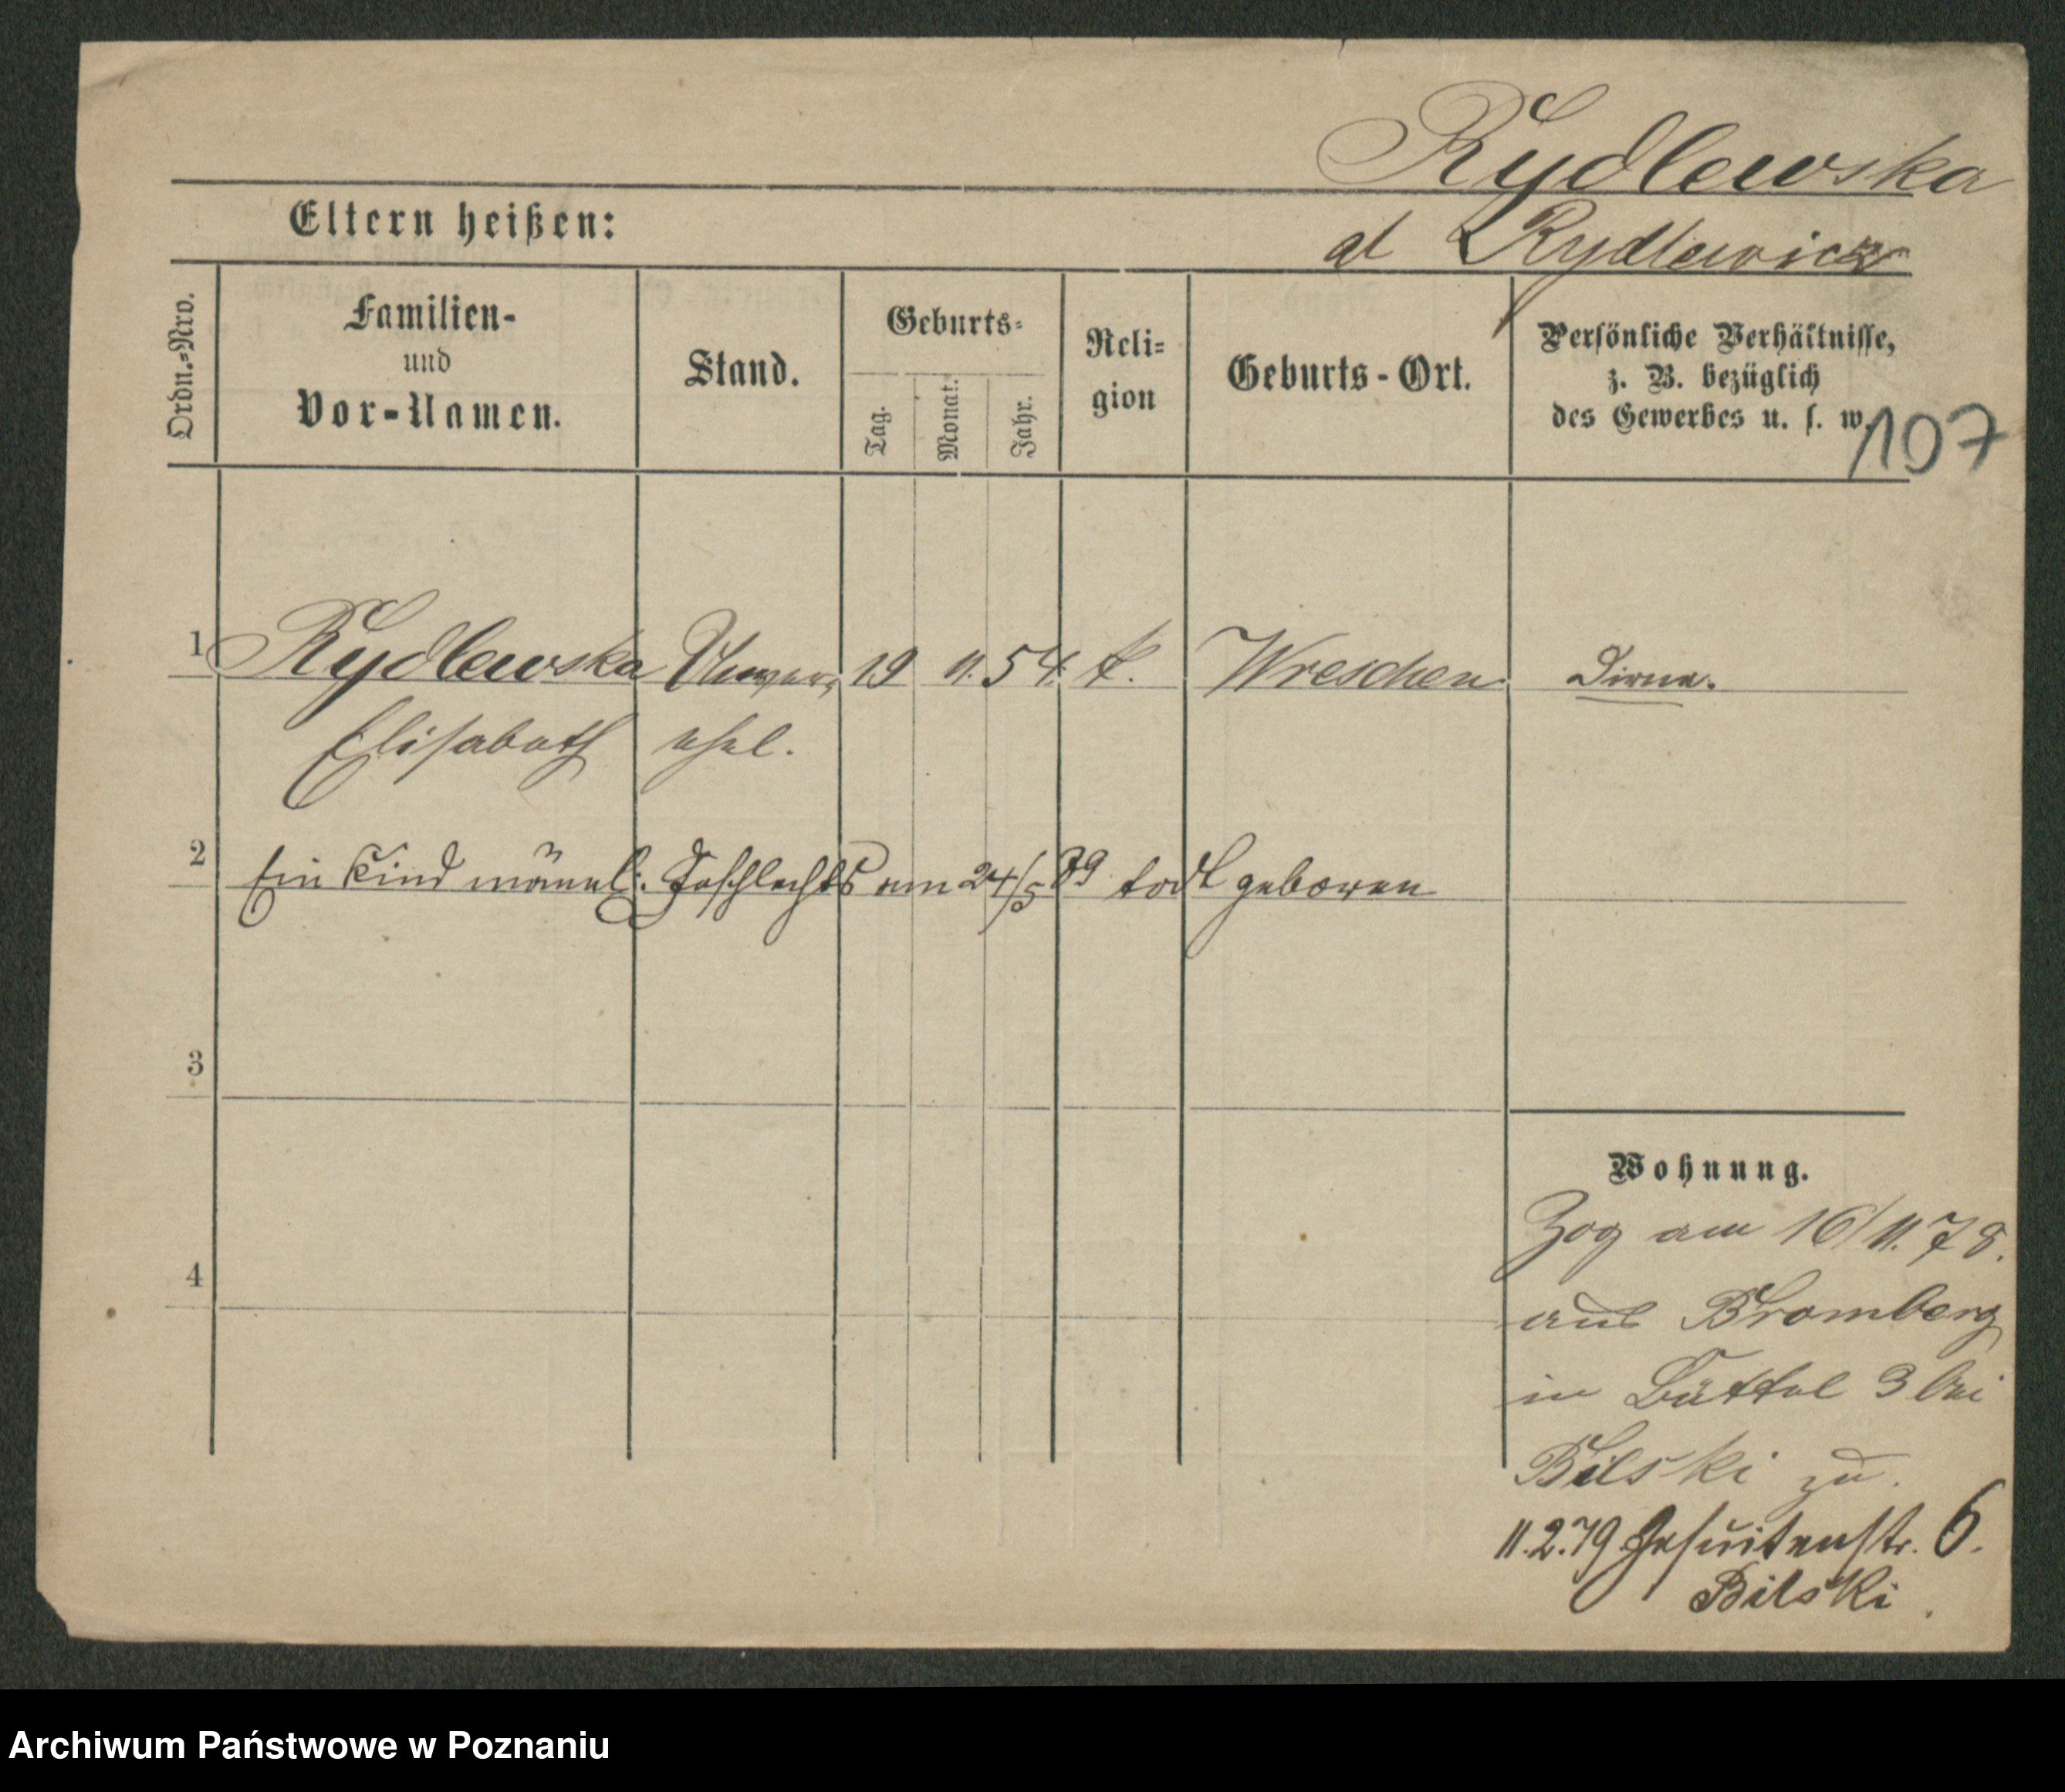 Rydlewska
Eltern heißen:
al Rydlewicz
Ordn.=Nro.
Familien-
und
Vor-Namen.
Stand.
Geburts=
Tag.
Monat.
Jahr.
Reli=
gion
Geburts-Ort.
Persönliche Verhältnisse,
z. B. bezüglich
des Gewerbes u. s. w.
107
1 Rydlewska 19 11. 54. k. Wreschen Dirne.
Elisabeth ehel.
2 Ein Kind männl: Geschlechts am 24/5 89 todt geboren
3
4
Wohnung.
Zog am 16/11. 78.
aus Bromberg
in Büttel 3 bei
Bilski zu.
11.2.79 Jesuitenstr. 6.
Bilski.
Archiwum Państwowe w Poznaniu